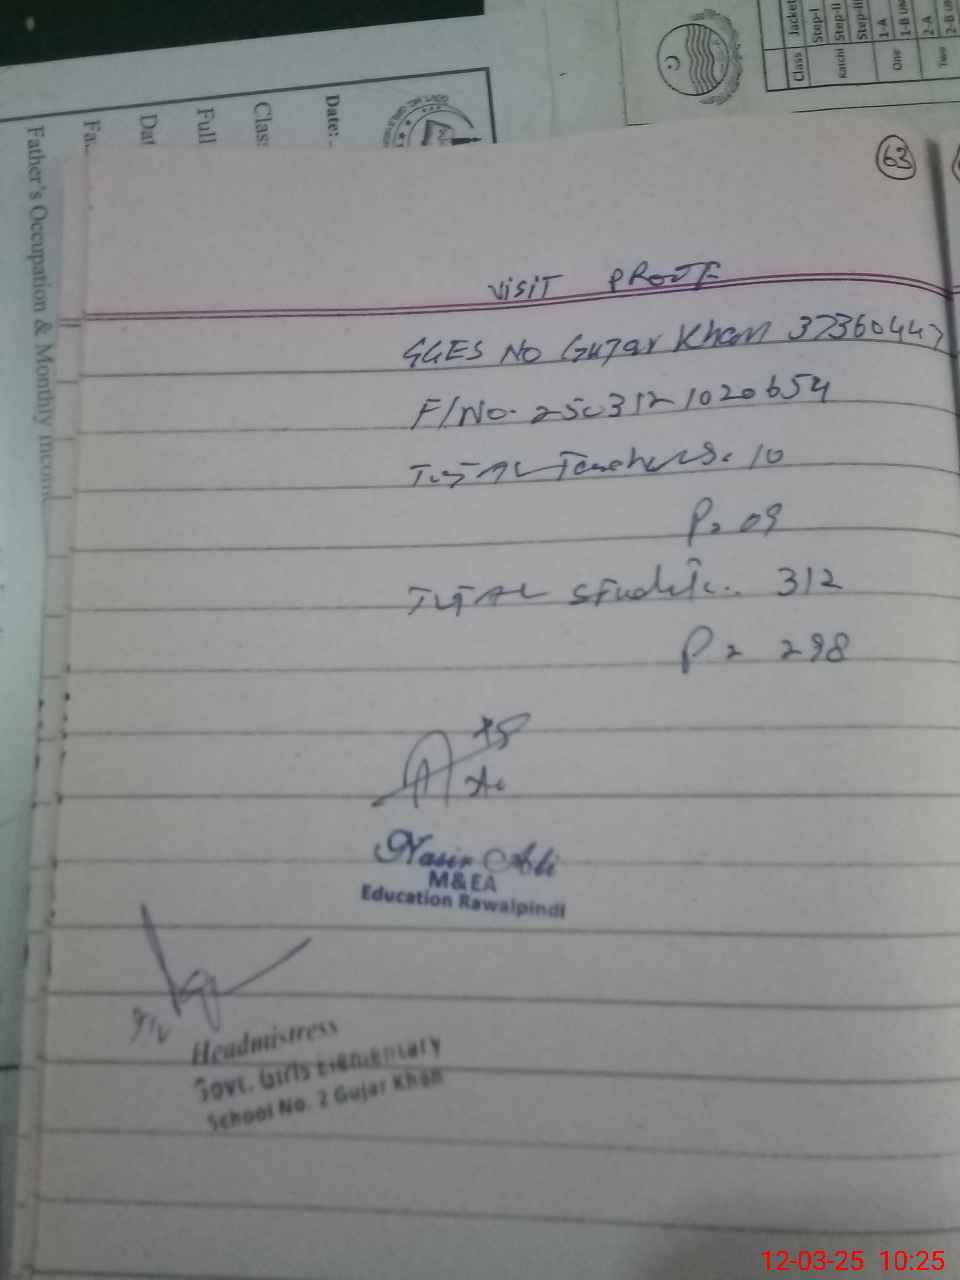 Jacket
Class Step-I
Katchi Step-II
Step-III
One 1-A
1-B
Two 2-A
2-B
Date: -
Clas
Full
Dat
Fa
Father's Occupation & Monthly Income
63
VISIT PROOF
GGES NO Gujar Khan 37360447
F/No. 250312 1020654
TOTAL Teachers. 10
P= 09
TOTAL Students.. 312
P= 298
Nasir Ali
M&EA
Education Rawalpindi
Headmistress
Govt. Girls Elementary
School No. 2 Gujar Khan
12-03-25 10:25